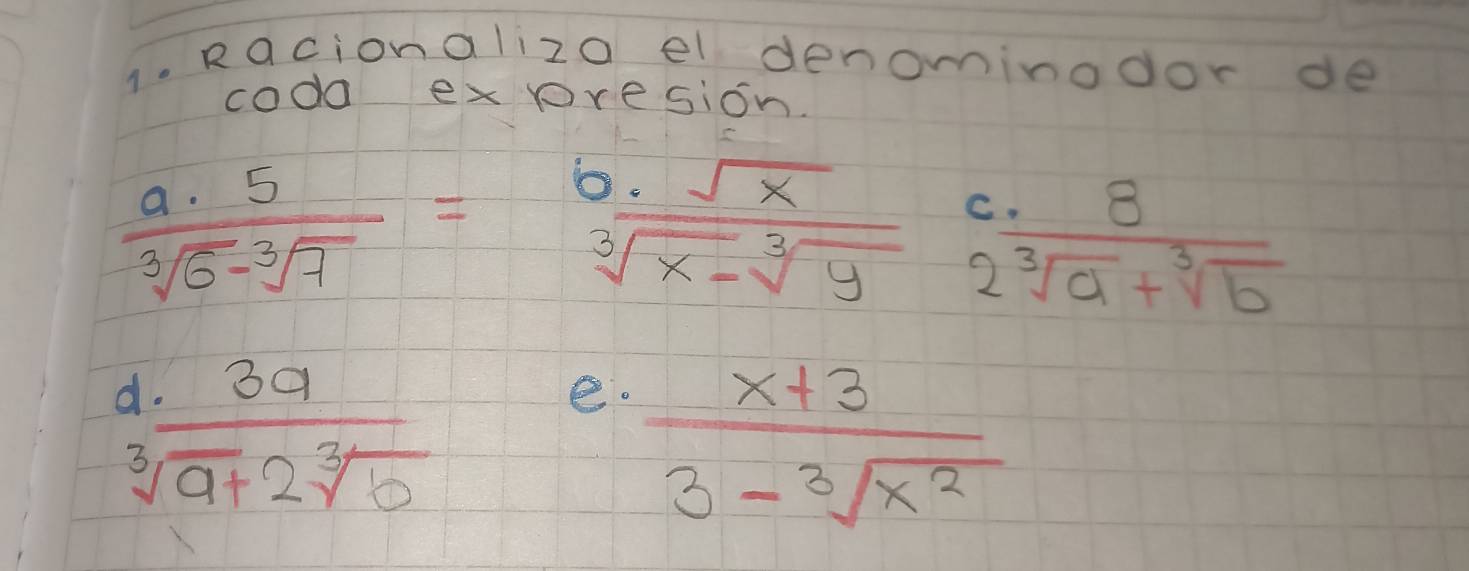 1. Racionaliza el denominador de
cada expresión.
a. 5 / ∛6 - ∛7 = b. √x / ∛x - ∛y c. 8 / 2∛a + ∛b
d. 3a / ∛a + 2∛b e. x+3 / 3 - ∛x²